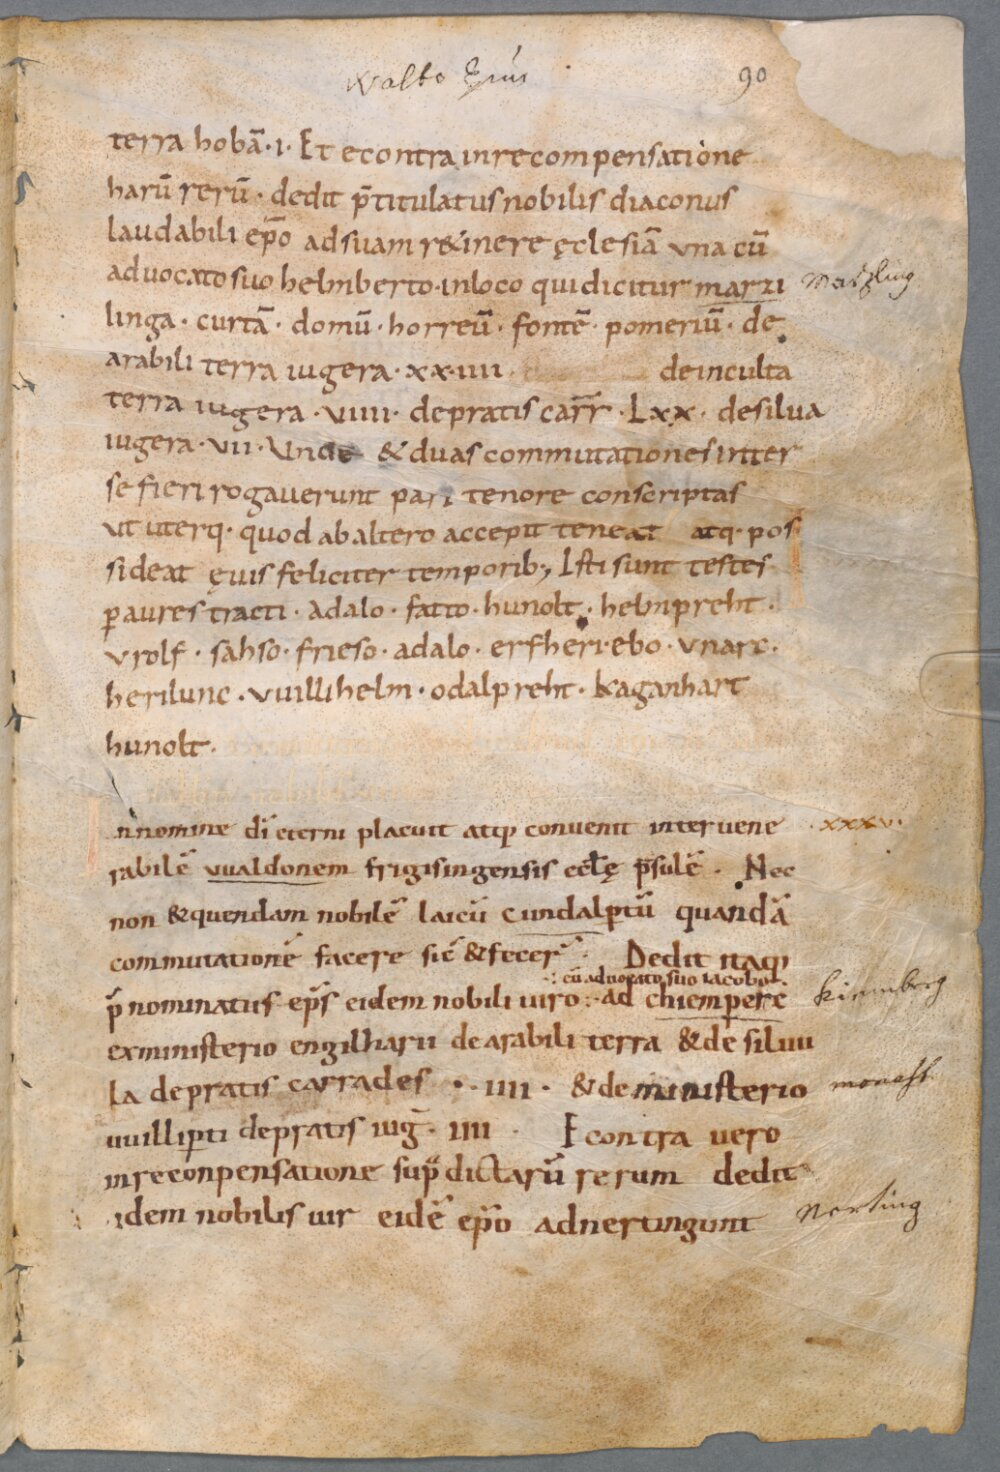 Waldo Epũs
90
terra hobā · i · Et econtra in recompensatione
harū rerū · dedit p̄titulatus nobilis diaconus
laudabili ep̄o ad suam r&inere ęclesiā una cū
advocato suo helmberto · in loco qui dicitur marzi
Marzling
linga · curtā · domū · horreū · fontē · pomeriū · de
arabili terra iugera · xx · iiii · de inculta
terra iugera · viiii · de pratis carr̄ · Lxx · de silua
iugera · vii · Unde & duas commutationes inter
se fieri rogauerunt pari tenore conscriptas
ut uterq · quod ab altero accepit teneat atq · pos
sideat ęuis feliciter temporib; Isti sunt testes
p aures tracti · adalo · fatto · hunolt · helmpreht ·
vrolf · sahso · frieso · adalo · erfheri · ebo · vnarc ·
herilunc · vuillihelm · odalpreht · kaganhart
hunolt ·
In nomine dī eterni placuit atq; convenit inter vene
· xxxv ·
rabilē vualdonem frigisingensis eccłę p̄sulē · Nec
non & quendam nobilē laicū cundalptū quandā
commutationē facere sic̄ & fecer̄ Dedit itaq;
: cū advocato suo iacobo ·
p̄nominatus ep̄s eidem nobili uiro : ad chiemperc̄
kirnnberg
ex ministerio engilharii de arabili terra & de siluu
la de pratis carrades · iiii · & de ministerio
monast
uuillipti de pratis iuḡ · iiii · Econtra uero
in reconpensatione sup̄dictarū rerum dedit
idem nobilis uir eidē ep̄o ad nertingunt
Nerting